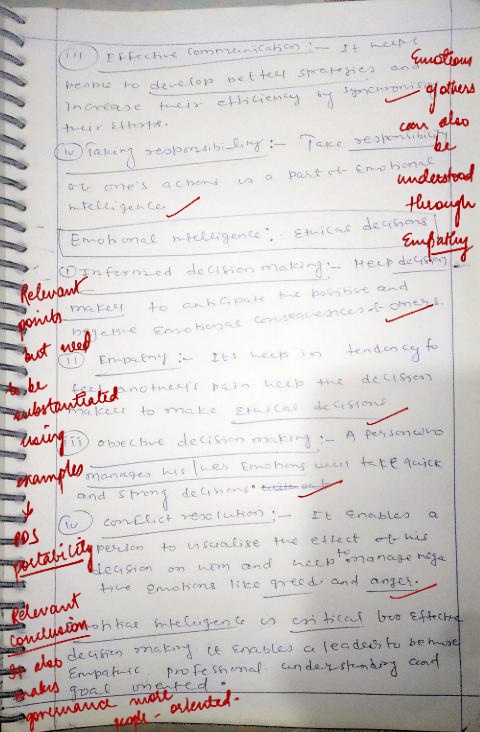 iii) Effective communication :- It helps
people to develop better strategies and
increase their efficiency by synchronising
their efforts.
iv) Taking responsibility :- Take responsibility
of one's actions is a part of emotional
intelligence.
Emotions
of others
can also
be
understood
through
Empathy
Emotional intelligence : Ethical decisions
i) Informed decision making :- Help decision
maker to anticipate the positive and
negative Emotional consequences of others.
ii) Empathy :- Its help in tendency to
feel another's pain help the decision
makers to make Ethical decisions
iii) objective decision making :- A person who
manages his/her Emotions will take quick
and strong decisions.
iv) conflict resolution :- It enables a
person to visualise the effect of his
decision on him and help to manage nega
tive emotions like greed and anger.
Relevant
points
but need
to be
substantiated
using
examples
↓
PDS
portability
intelligence is critical for effective
decision making it enables a leader to be more
Empathic, professional, understanding and
goal oriented.
Relevant
conclusion
It also
makes
governance more
people-oriented.